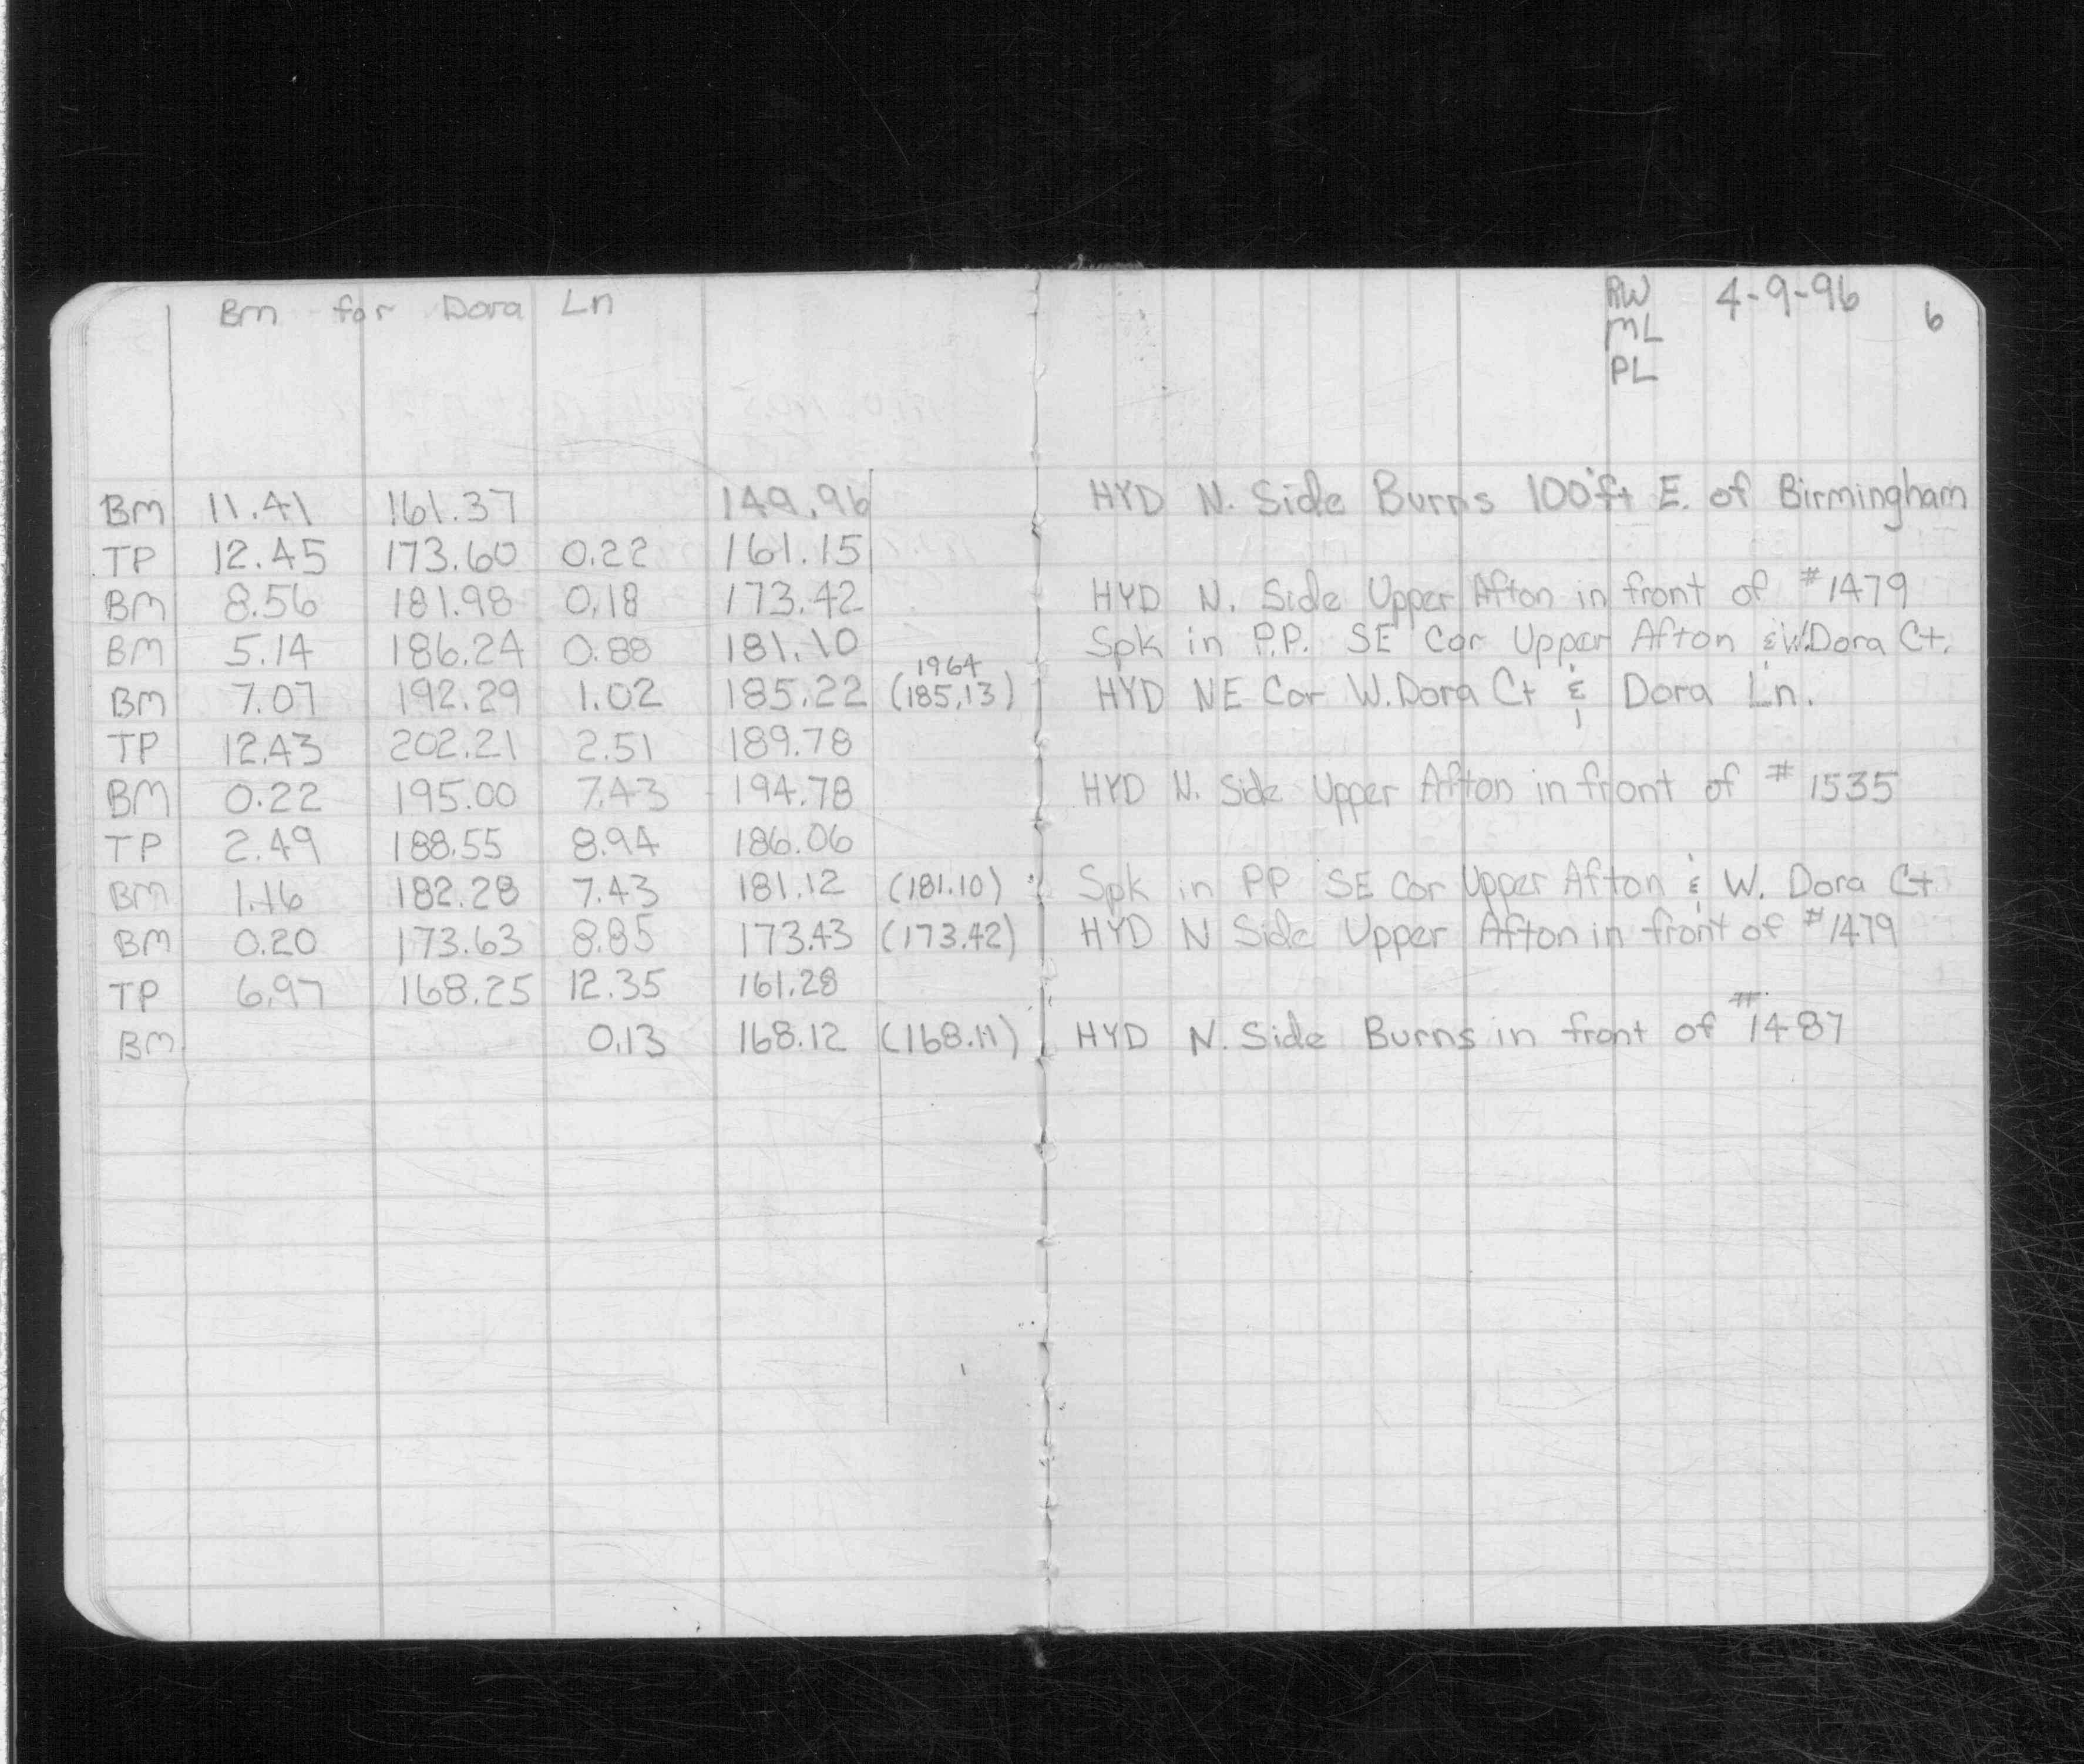 Bm for Dora Ln
RW 4-9-96 6
ML
PL
BM 11.41 161.37 149.96 HYD N. Side Burns 100'ft E. of Birmingham
TP 12.45 173.60 0.22 161.15
BM 8.56 181.98 0.18 173.42 HYD N. Side Upper Afton in front of #1479
BM 5.14 186.24 0.88 181.10 Spk in P.P. SE Cor Upper Afton & W.Dora Ct.
1964
BM 7.07 192.29 1.02 185.22 (185.13) HYD NE Cor W.Dora Ct & Dora Ln.
TP 12.43 202.21 2.51 189.78
BM 0.22 195.00 7.43 194.78 HYD N. Side Upper Afton in front of # 1535
TP 2.49 188.55 8.94 186.06
BM 1.16 182.28 7.43 181.12 (181.10) Spk in PP SE Cor Upper Afton & W. Dora Ct
BM 0.20 173.63 8.85 173.43 (173.42) HYD N Side Upper Afton in front of #1479
TP 6.97 168.25 12.35 161.28
BM 0.13 168.12 (168.11) HYD N. Side Burns in front of #1487